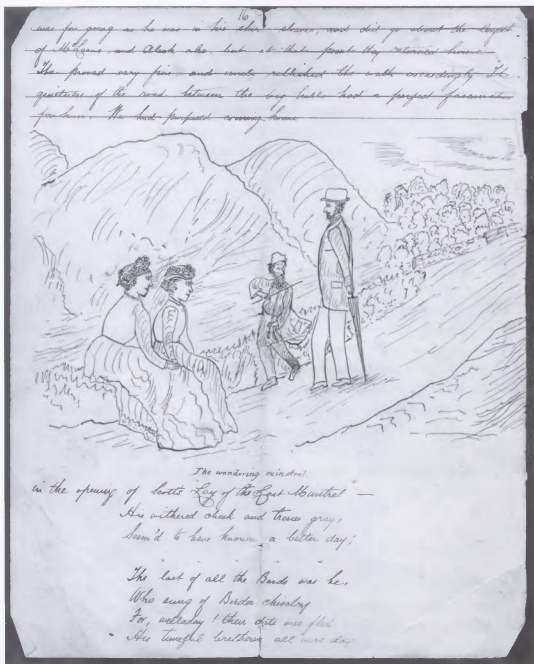 16
was for going as he was in his shirt sleeves, and did go about the length
of and Alick also, but at that point they returned home
The proved very fine and uncle relished the walk exceedingly. The
quietness of the road between the big hills had a perfect fascination
for him. We had purposed coming home
The wandering minstrel.
in the opening of Scott's Lay of the Last Minstrel —
His withered cheek and tresses gray,
Seem'd to have known a better day;
The last of all the Bards was he,
Who sung of Border chivalry
For, welladay! their date was fled
His tuneful brethren all were dead